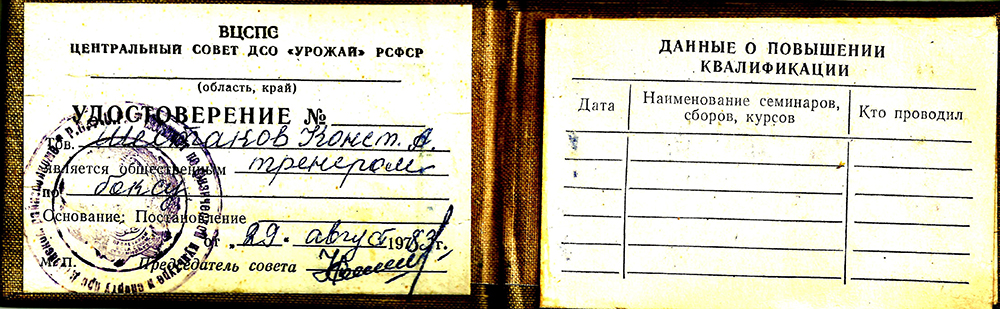 ВЦСПС
ЦЕНТРАЛЬНЫЙ СОВЕТ ДСО «УРОЖАЙ» РСФСР
(область, край)
УДОСТОВЕРЕНИЕ №
Тов. Шестаков Конст. А.
является общественным тренером
по боксу
Основание: Постановление
от „29" август 1983 г.
М.П. Председатель совета
ДАННЫЕ О ПОВЫШЕНИИ
КВАЛИФИКАЦИИ
Дата
Наименование семинаров,
сборов, курсов
Кто проводил